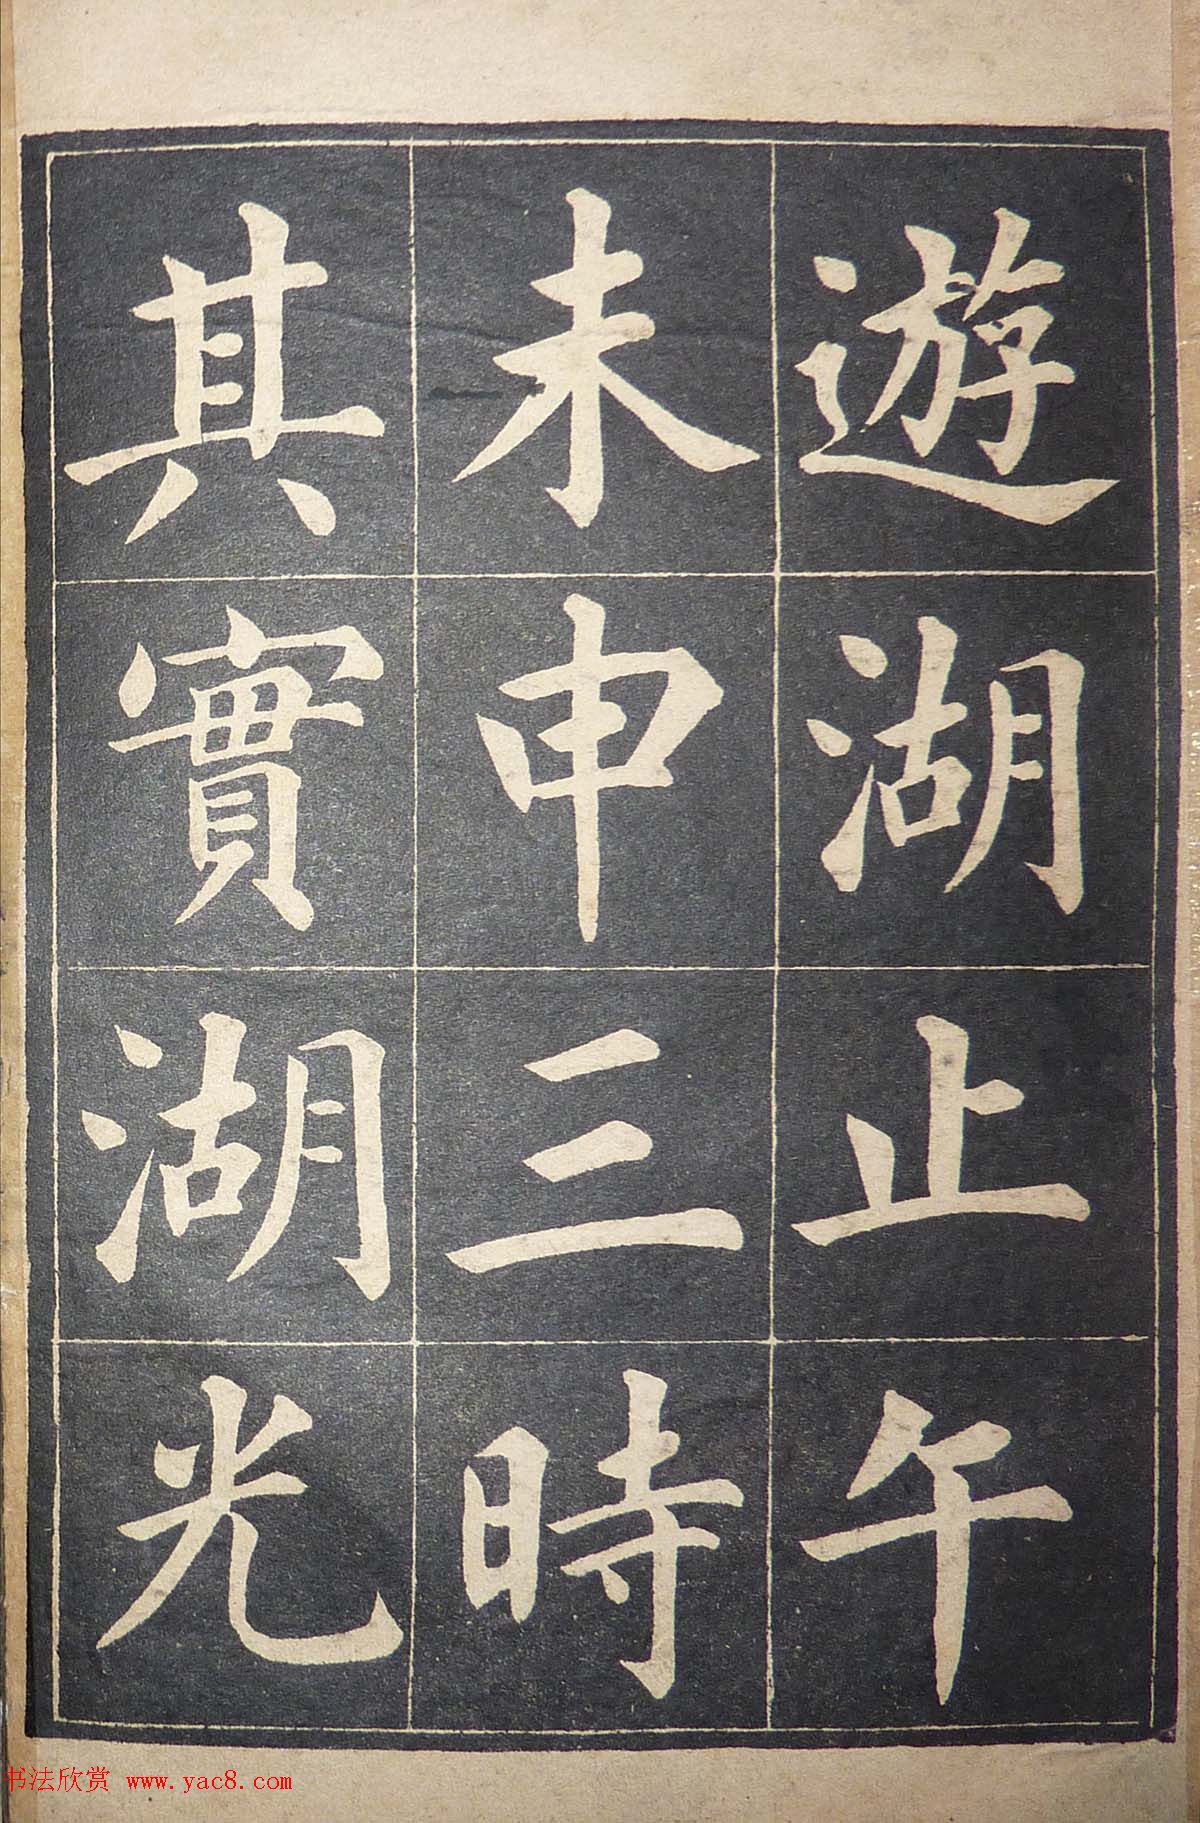 遊湖止午
未申三時
其實湖光
书法欣赏 www.yac8.com